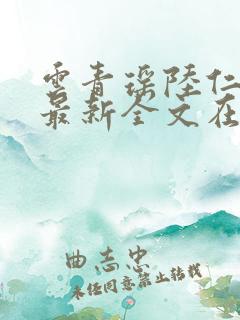 云青瑶陆仁
最新全文在
曲志忠
未经同意禁止转载